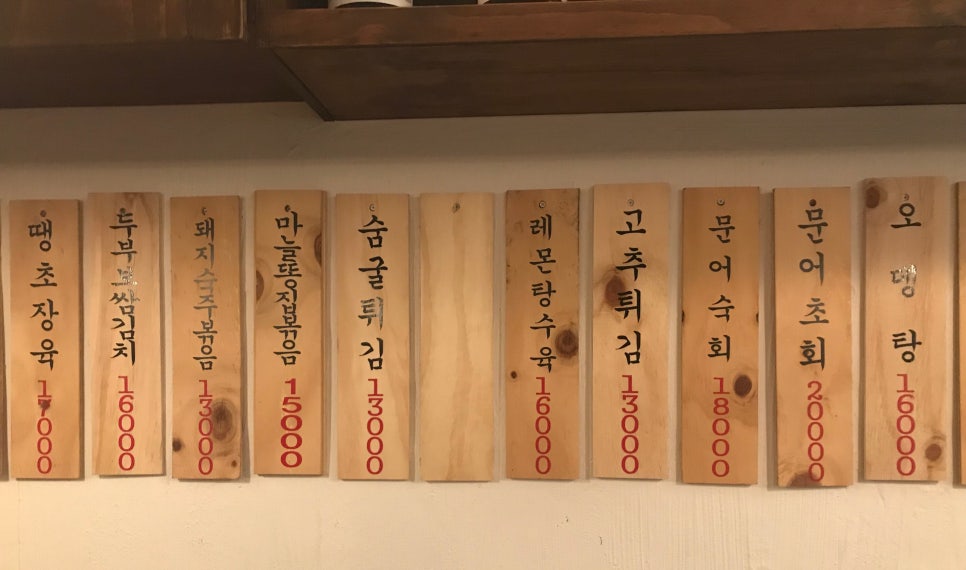 땡초장육
17000
두부보쌈김치
16000
돼지숙주볶음
13000
마늘똥집볶음
1500
숨굴튀김
13000
레몬탕수육
16000
고추튀김
13000
문어숙회
18000
문어초회
20000
오뎅탕
16000